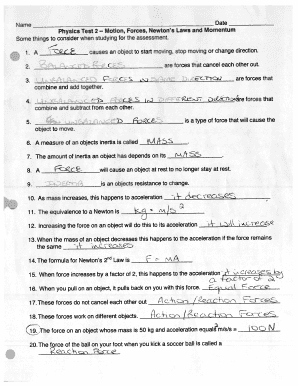 Name Date
Physics Test 2 – Motion, Forces, Newton's Laws and Momentum
Some things to consider when studying for the assessment.
1. A FORCE causes an object to start moving, stop moving or change direction.
2. BALANCED FORCES are forces that cancel each other out.
3. UNBALANCED FORCES IN SAME DIRECTION are forces that
combine and add together.
4. UNBALANCED FORCES IN DIFFERENT DIRECTION are forces that
combine and subtract from each other.
5. UNBALANCED FORCES is a type of force that will cause the
object to move.
6. A measure of an objects inertia is called MASS
7. The amount of inertia an object has depends on its MASS.
8. A FORCE will cause an object at rest to no longer stay at rest.
9. INERTIA is an objects resistance to change.
10. As mass increases, this happens to acceleration it decreases
11. The equivalence to a Newton is kg = m/s²
12. Increasing the force on an object will do this to its acceleration it will increase
13. When the mass of an object decreases this happens to the acceleration if the force remains
the same it increases
14. The formula for Newton's 2nd Law is F = MA
15. When force increases by a factor of 2, this happens to the acceleration it increases by
a factor of 2
16. When you pull on an object, it pulls back on you with this force Equal Force
17. These forces do not cancel each other out Action/Reaction Forces
18. These forces work on different objects. Action/Reaction Forces
19. The force on an object whose mass is 50 kg and acceleration equals 2 m/s/s = 100N
20. The force of the ball on your foot when you kick a soccer ball is called a
Reaction Force